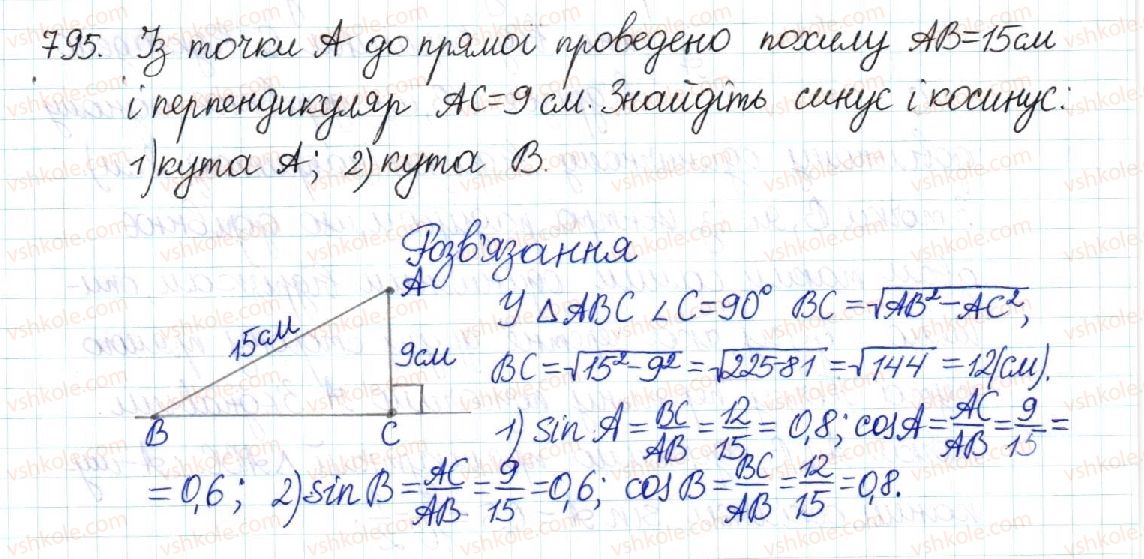 795. Із точки A до прямої проведено похилу AB=15см
і перпендикуляр AC=9 см. Знайдіть синус і косинус:
1) кута A; 2) кута B.
Розв'язання
A
15см
9см
B
C
У △ABC ∠C=90° BC=√(AB²-AC²),
BC=√(15²-9²)=√(225-81)=√144=12(см).
1) sin A = BC/AB = 12/15 = 0,8; cos A = AC/AB = 9/15 =
= 0,6; 2) sin B = AC/AB = 9/15 = 0,6; cos B = BC/AB = 12/15 = 0,8.
vshkole.com